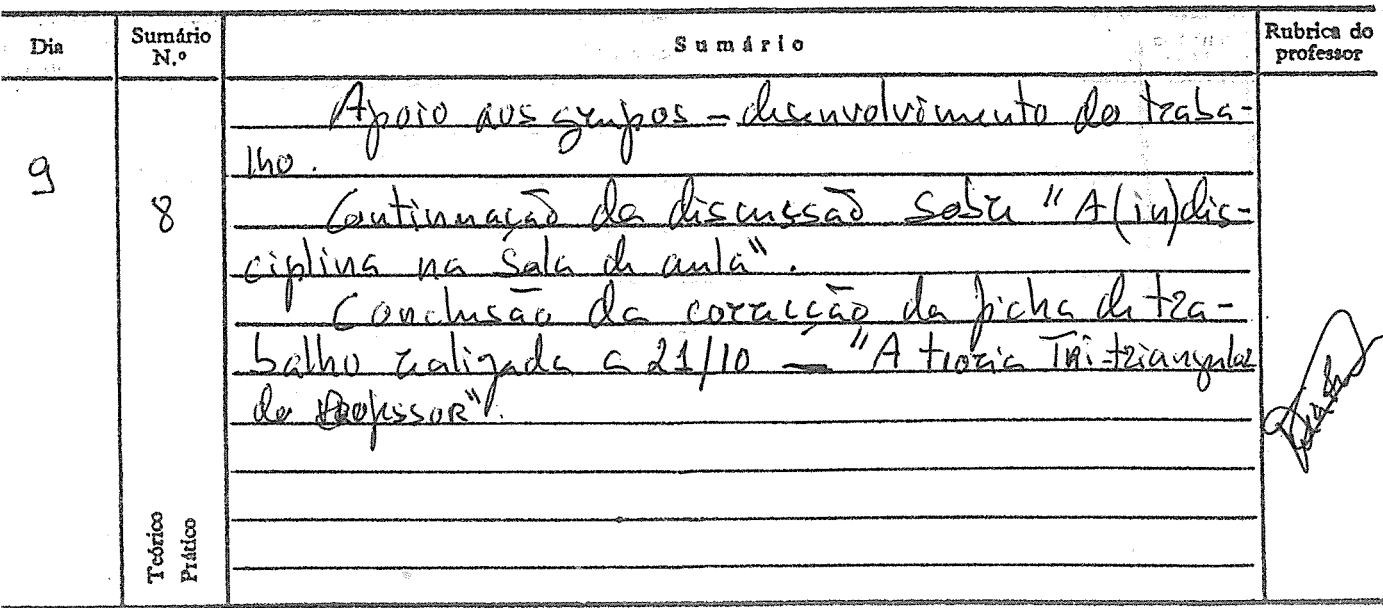 Dia
Sumário N.º
Sumário
Rubrica do professor
Apoio aos grupos - desenvolvimento do traba-
lho.
9
8
Continuação da discussão sobre "A (in)dis-
ciplina na sala de aula".
Conclusão da correcção da ficha de tra-
balho realizada a 21/10 — "A tioria Tri-triangular
do Professor".
Teórico
Prático